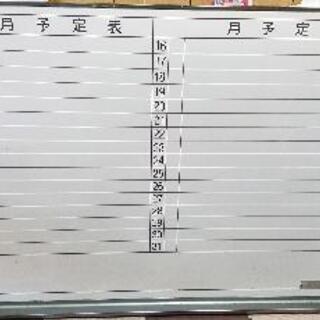 月 予 定 表
月 予 定
16
17
18
19
20
21
22
23
24
25
26
27
28
29
30
31